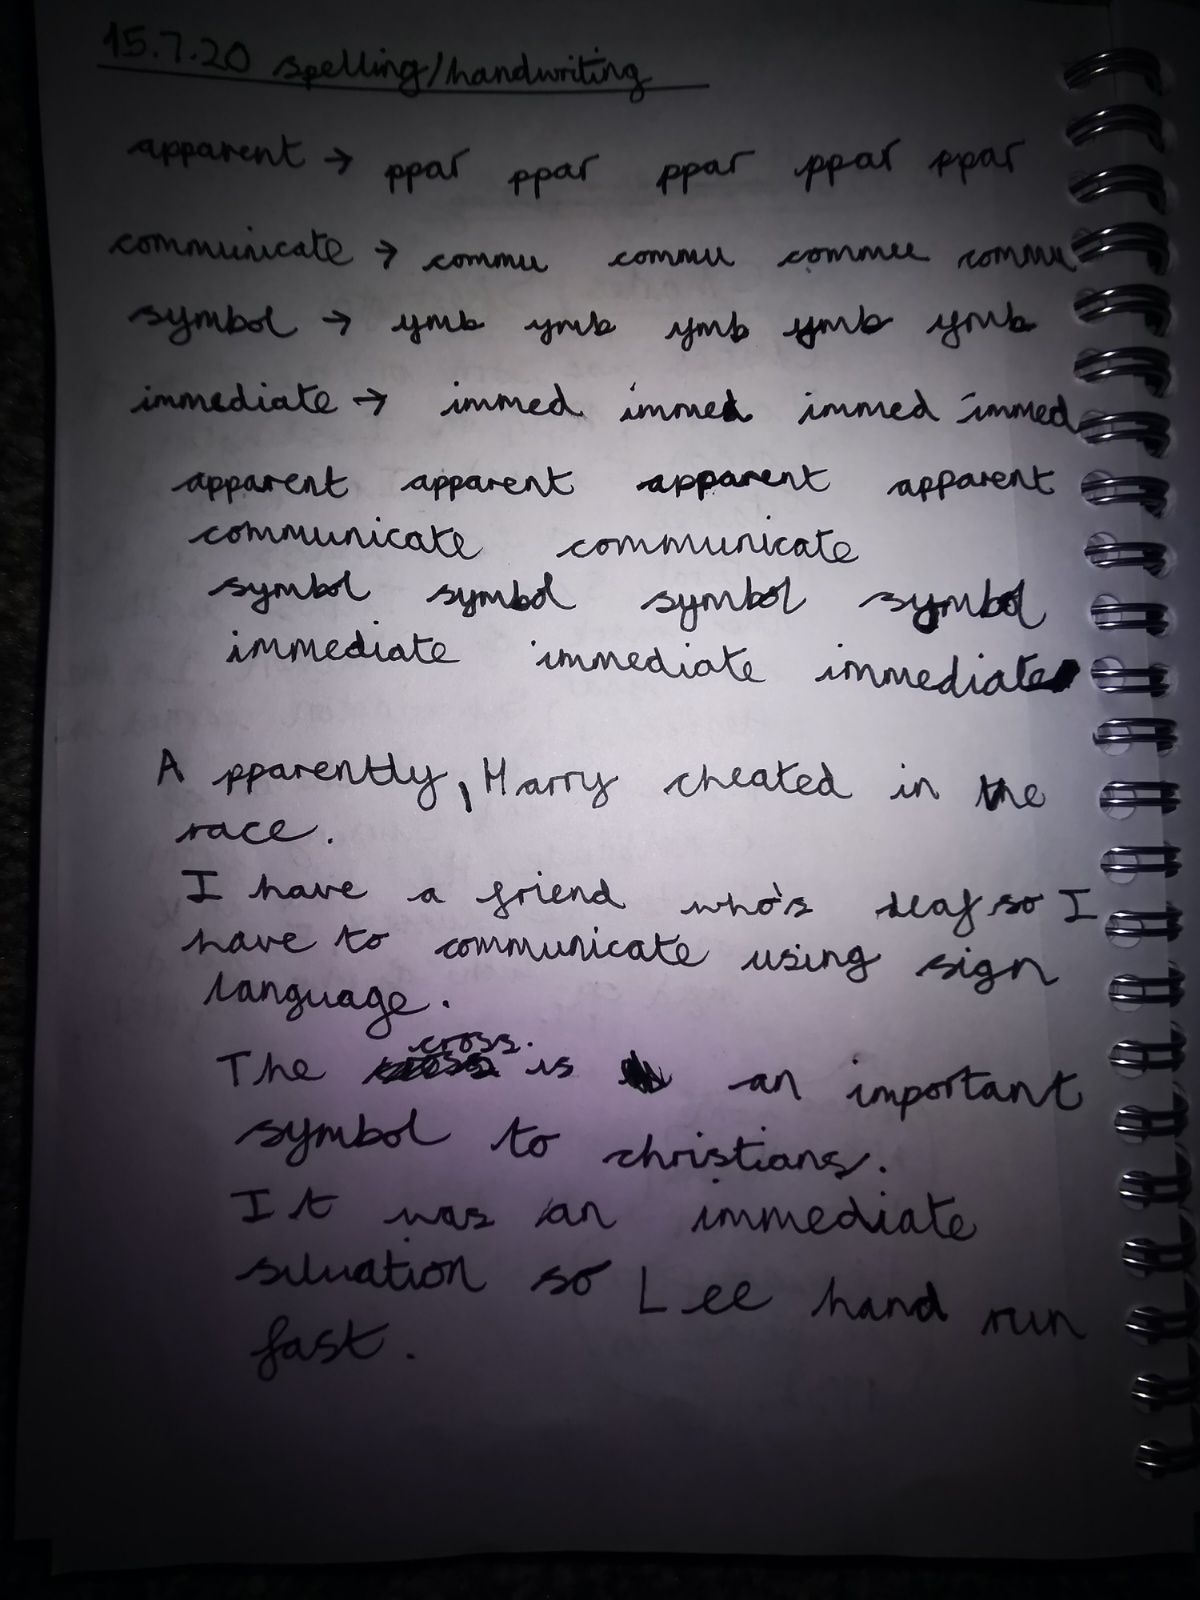 15.7.20 spelling/handwriting
apparent → ppar ppar ppar ppar ppar
communicate → commu commu commu commu
symbol → ymb ymb ymb ymb ymb
immediate → immed immed immed immed
apparent apparent apparent apparent
communicate communicate
symbol symbol symbol symbol
immediate immediate immediate
Apparently, Harry cheated in the
race.
I have a friend who's deaf so I
have to communicate using sign
language.
The cross is an important
symbol to christians.
It was an immediate
situation so Lee hand run
fast.